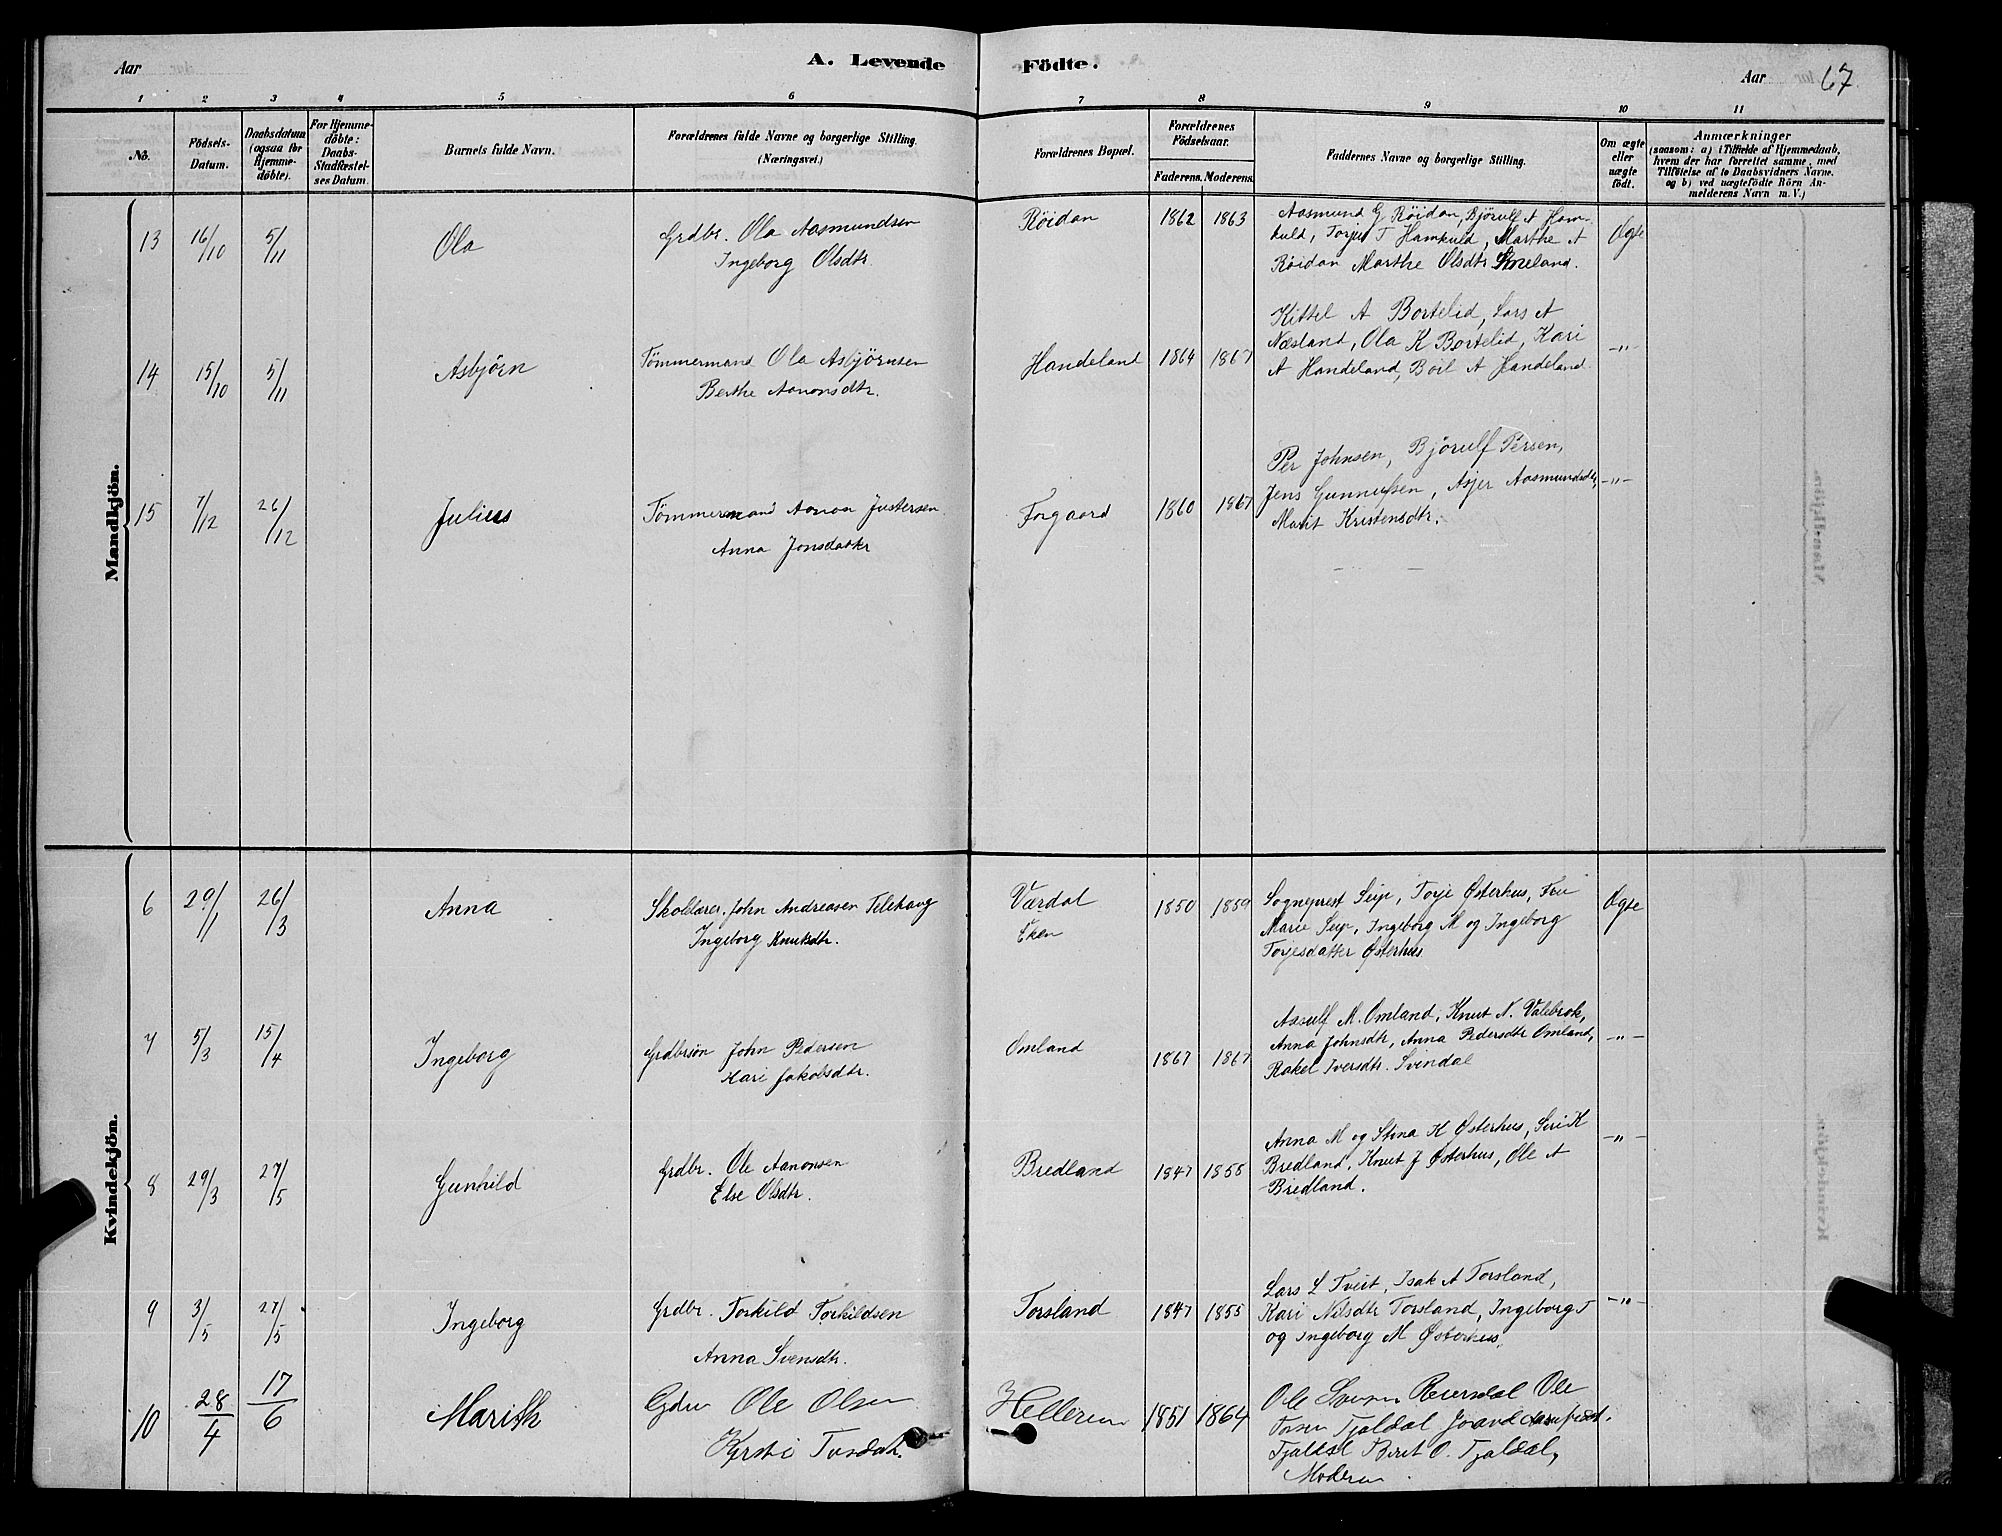 Aar
A. Levende
Födte.
Aar
67.
1 2 3 4 5 6 7 8 9 10 11
No.
Födsels-
Datum.
Daabsdatum
(ogsaa for
Hjemme-
döbte).
For Hjemme-
döbte:
Daabs-
Stadfæstel-
ses Datum.
Barnets fulde Navn.
Forældrenes fulde Navne og borgerlige Stilling.
(Næringsvei.)
Forældrenes Bopæl.
Forældrenes
Födselsaar.
Faderens. Moderens.
Faddernes Navne og borgerlige Stilling.
Om ægte
eller
uægte
födt.
Anmærkninger
(saasom: a) i Tilfælde af Hjemmedaab,
hvem der har forrettet samme, med
Tilföielse af to Daabsvidners Navne.
og b) ved uægtefödte Börn An-
melderens Navn m. V.)
Mandkjön.
13 16/10 5/11 Ola
Grdbr. Ola Aasmundsen
Ingeborg Olsdtr.
Röidan 1862 1863
Aasmund G Röidan, Björulf A Ham-
kuld, Torjus T Hamkuld, Marthe A
Röidan Marthe Olsdtr Smeland.
Ægte
14 15/10 5/11 Asbjörn
Tömmermand Ola Asbjörnsen
Berthe Aanonsdtr.
Handeland 1864 1867
Kittel A Bortelid, Lars A
Næsland, Ola K Bortelid, Kari
A Handeland, Boil A Handeland
-"-
15 7/12 26/12 Julius
Tömmermand Aanon Justersen
Anna Jonsdatter
Forgaard 1860 1867
Per Johnsen, Björulf Persen,
Jens Gunnufsen, Asjer Aasmundsdtr,
Marit Kristensdtr.
-"-
Kvindekjön.
6 29/1 26/3 Anna
Skolelærer. John Andreasen Telehaug
Ingeborg Knutsdtr.
Værdal
Eken
1850 1859
Sogneprest Seip, Torje Østerhus, Fru
Marie Seip, Ingeborg M og Ingeborg
Torjesdatter Østerhus
Ægte
7 5/3 15/4 Ingeborg
Grdbrsön John Pedersen
Kari Jakobsdtr.
Omland 1867 1867
Asulf M. Omland, Knut N. Valebrok,
Anna Johnsdtr, Anna Pedersdtr Omland,
Rakel Iversdtr. Svindal
-"-
8 29/3 27/5 Gunhild
Grdbr. Ole Aanonsen
Else Olsdtr.
Bredland 1847 1855
Anna M og Stina K Østerhus, Siri K
Bredland, Knut J Østerhus, Ole A
Bredland.
-"-
9 3/5 27/5 Ingeborg
Grdbr. Torkild Torkildsen
Anna Svensdtr.
Torsland 1847 1855
Lars L Tveit, Isak A Torsland,
Kari Nilsdtr Torsland, Ingeborg T
og Ingeborg M Østerhus.
-"-
10 28/4 17/6 Marith
Ole Olsen
Kjersti
Helleren 1851 1864
Ole Reiersdal Ole
Tjaldal
Tjaldal Berit O. Tjaldal,
Moderen